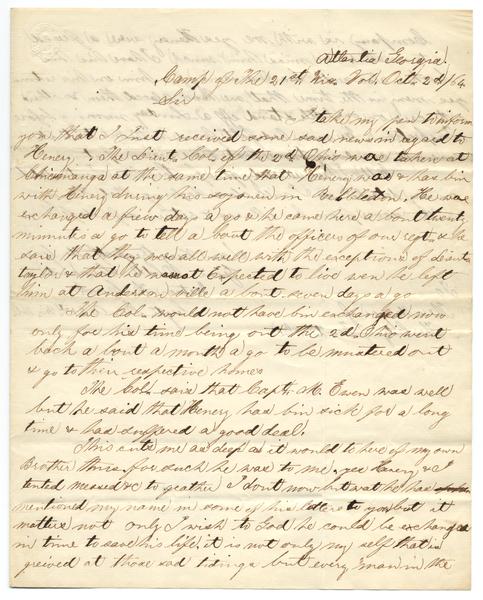 Atlantia Georgia.
Camp of The 21st Wis. Vol. Oct. 2d/64
Sir
take my pen to inform
you that I Just received some sad news in regard to
Henery. The Lieut. Col. of the 2d Ohio was taken at
Chicamauga at the same time that Henery was & has bin
with Henery during his sojourn in . He was
exchanged a few days a go & he came here a bout twenty
minuts a go to tell a bout the officers of our regt. & he
said that they were all well with the exceptions of Lieut.
Taylor & that he was not Expected to live wen he left
him at Anderson ville a bout seven days a go
The Col. would not have bin exchanged now
only for his time being out the 2d. Ohio went
back a bout a month a go to be mustered out
& go to thier respective homes
The Col. said that Capt. M. Ewen was well
but he said that Henery had bin sick for a long
time & had suffered a good deal.
This cuts me as deep as it would to here of my own
Brother thus. for such he was to me. yes Henery & I
tented messed &c to geather I dont now but wat he has
mentioned my name in some of his letters to you but it
matters not only I wish to God he could be exchanged
in time to save his life. it is not only my self that is
greived at those sad tidings but every man in the